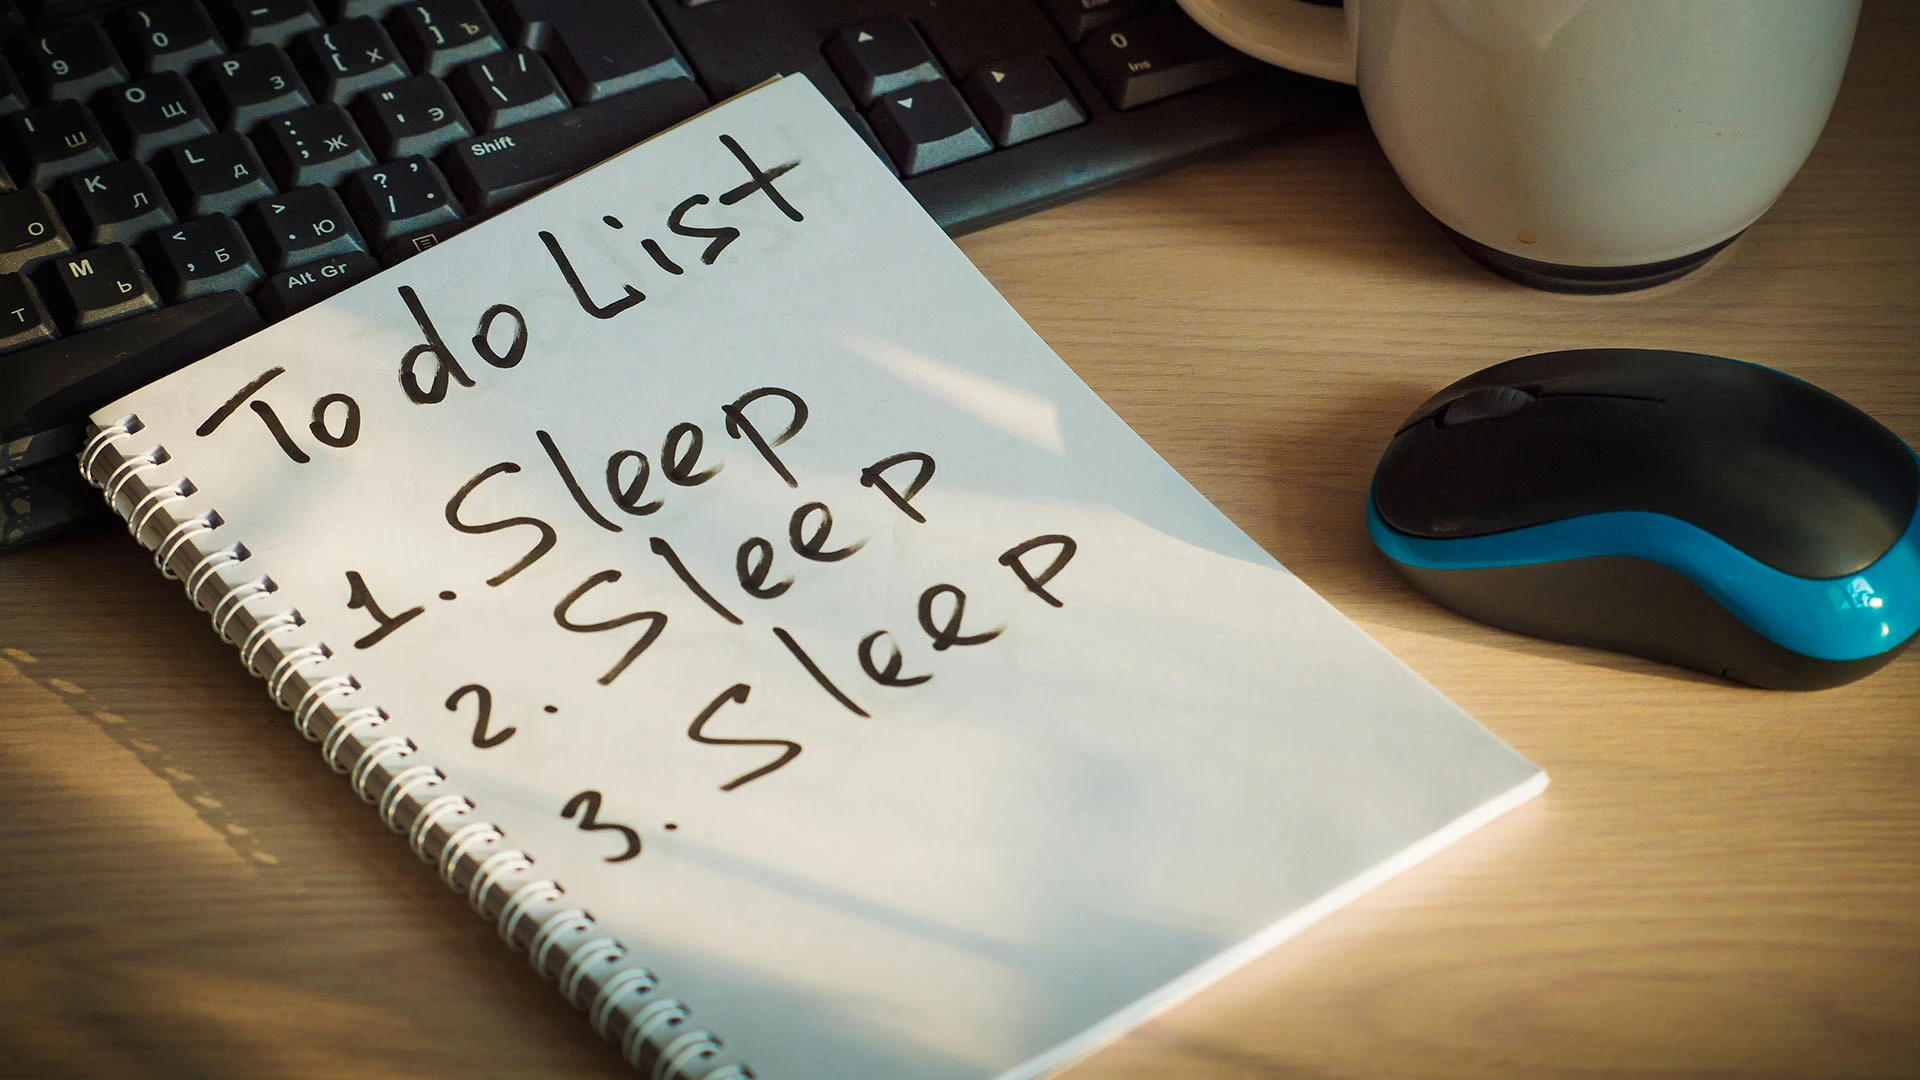 ( 9
) 0
_ -
P З
{ [ Х
} ] Ъ
| \ /
I Ш
O Щ
L Д
: ; Ж
" ' Э
Shift
О
K Л
< , Б
> . Ю
? / , .
Т
M Ь
Alt Gr
0 Ins
To do List
1. Sleep
2. Sleep
3. Sleep